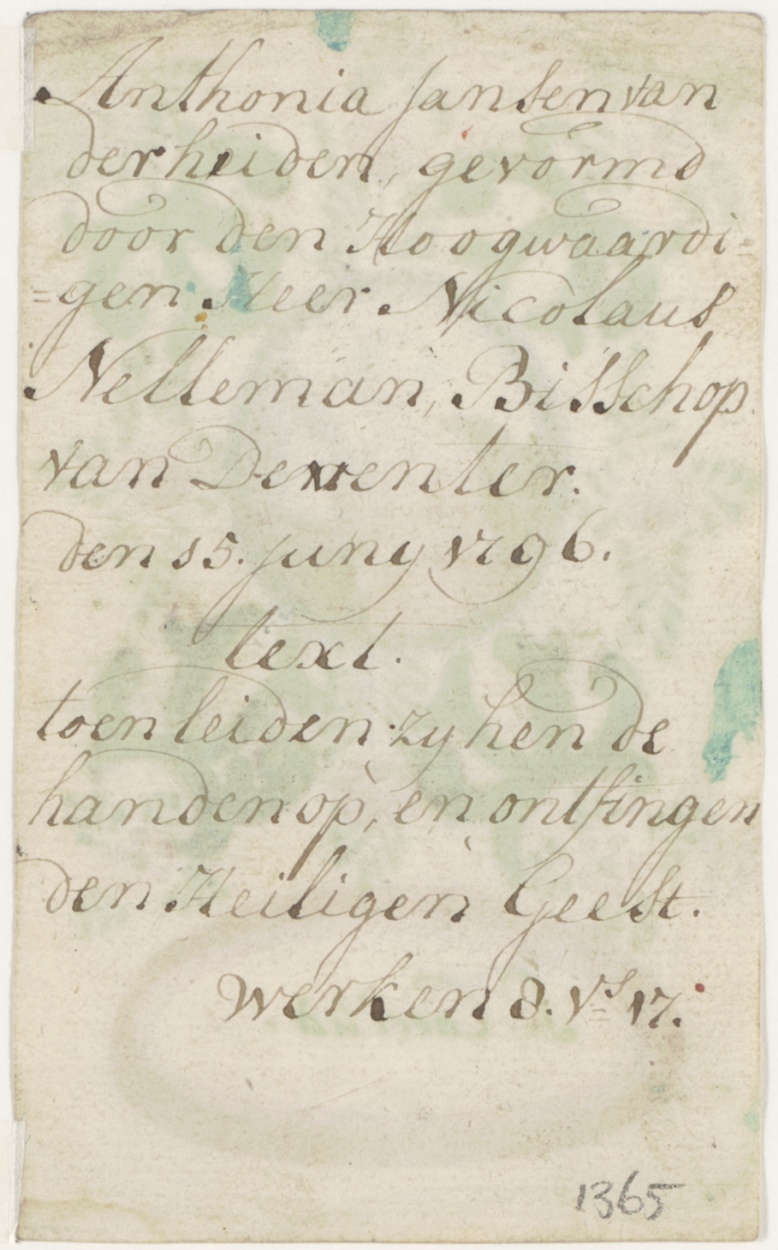 Anthonia Jansen van
der heiden, gevormd
door den Hoogwaardi=
=gen Heer Nicolaus
Nelleman, Bisschop
van Deventer.
den 15. Juny 1796.
text.
toen leiden zy hen de
handen op, en ontfingen
den Heiligen Geest.
Werken 8. Vs 17.
1365